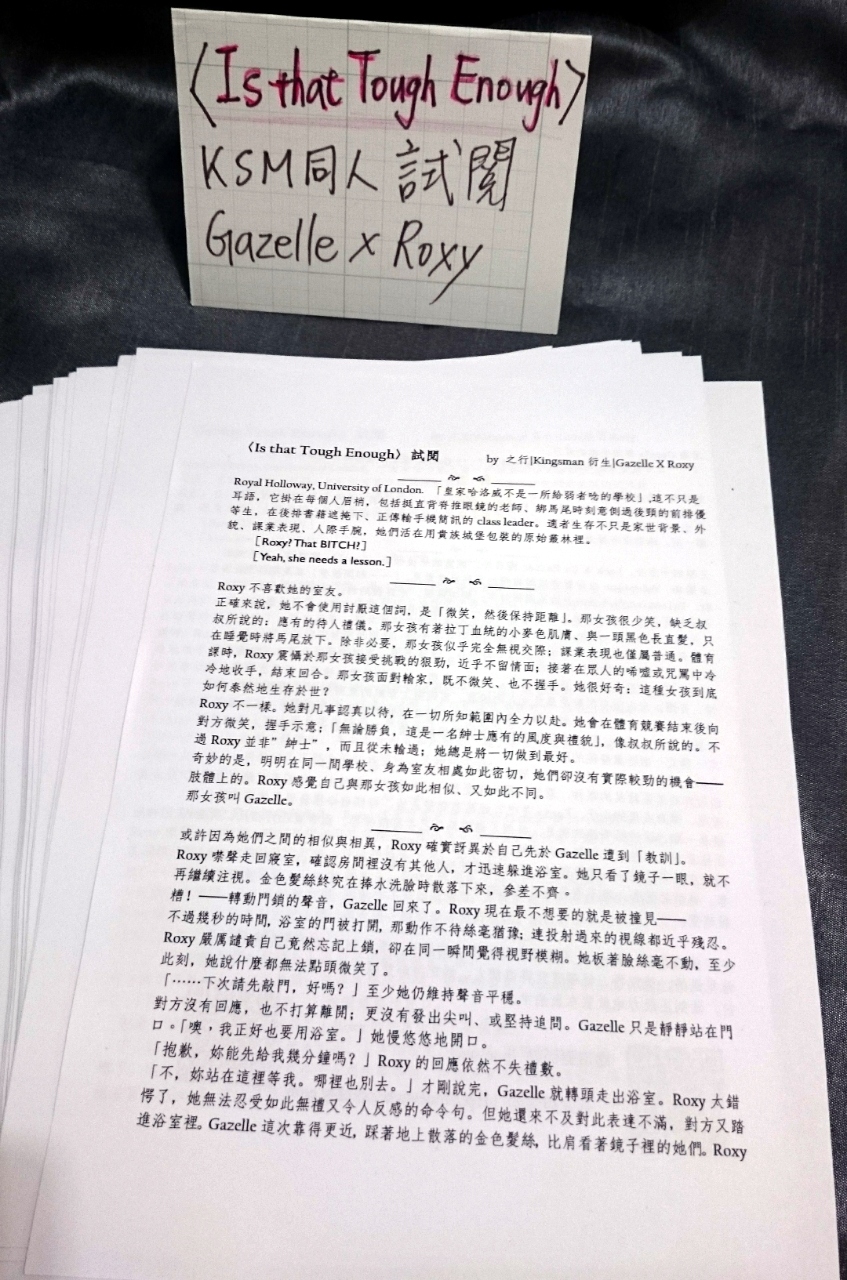 〈Is that Tough Enough〉
KSM同人 試閱
Gazelle x Roxy
〈Is that Tough Enough〉 試閱
by 之行|Kingsman 衍生|Gazelle X Roxy
Royal Holloway, University of London. 「皇家哈洛威不是一所給弱者唸的學校」,這不只是
耳語，它掛在每個人眉梢，包括挺直背脊推眼鏡的老師、綁馬尾時刻意側過後頸的前排優
等生，在後排書籍遮掩下、正傳輸手機簡訊的 class leader。適者生存不只是家世背景、外
貌、課業表現、人際手腕，她們活在用貴族城堡包裝的原始叢林裡。
[Roxy? That BITCH?]
[Yeah, she needs a lesson.]
Roxy 不喜歡她的室友。
正確來說，她不會使用討厭這個詞，是「微笑，然後保持距離」。那女孩很少笑，缺乏叔
叔所說的：應有的待人禮儀。那女孩有著拉丁血統的小麥色肌膚、與一頭黑色長直髮，只
在睡覺時將馬尾放下。除非必要，那女孩似乎完全無視交際；課業表現也僅屬普通。體育
課時，Roxy 震懾於那女孩接受挑戰的狠勁，近乎不留情面；接著在眾人的唏噓或咒罵中冷
冷地收手，結束回合。那女孩面對輸家，既不微笑、也不握手。她很好奇：這種女孩到底
如何泰然地生存於世？
Roxy 不一樣。她對凡事認真以待，在一切所知範圍內全力以赴。她會在體育競賽結束後向
對方微笑，握手示意：「無論勝負，這是一名紳士應有的風度與禮貌」，像叔叔所說的。不
過 Roxy 並非”紳士”，而且從未輸過；她總是將一切做到最好。
奇妙的是，明明在同一間學校、身為室友相處如此密切，她們卻沒有實際較勁的機會——
肢體上的。Roxy 感覺自己與那女孩如此相似、又如此不同。
那女孩叫 Gazelle。
或許因為她們之間的相似與相異，Roxy 確實訝異於自己先於 Gazelle 遭到「教訓」。
Roxy 噤聲走回寢室，確認房間裡沒有其他人，才迅速躲進浴室。她只看了鏡子一眼，就不
再繼續注視。金色髮絲終究在捧水洗臉時散落下來，參差不齊。
糟！——轉動門鎖的聲音，Gazelle 回來了。Roxy 現在最不想要的就是被撞見——
不過幾秒的時間，浴室的門被打開，那動作不待絲毫猶豫；連投射過來的視線都近乎殘忍。
Roxy 嚴厲譴責自己竟然忘記上鎖，卻在同一瞬間覺得視野模糊。她板著臉絲毫不動，至少
此刻，她說什麼都無法點頭微笑了。
「……下次請先敲門，好嗎？」至少她仍維持聲音平穩。
對方沒有回應，也不打算離開；更沒有發出尖叫、或堅持追問。Gazelle 只是靜靜站在門
口。「噢，我正好也要用浴室。」她慢悠悠地開口。
「抱歉，妳能先給我幾分鐘嗎？」Roxy 的回應依然不失禮數。
「不，妳站在這裡等我。哪裡也別去。」才剛說完，Gazelle 就轉頭走出浴室。Roxy 太錯
愕了，她無法忍受如此無禮又令人反感的命令句。但她還來不及對此表達不滿，對方又踏
進浴室裡。Gazelle 這次靠得更近，踩著地上散落的金色髮絲，比肩看著鏡子裡的她們。Roxy